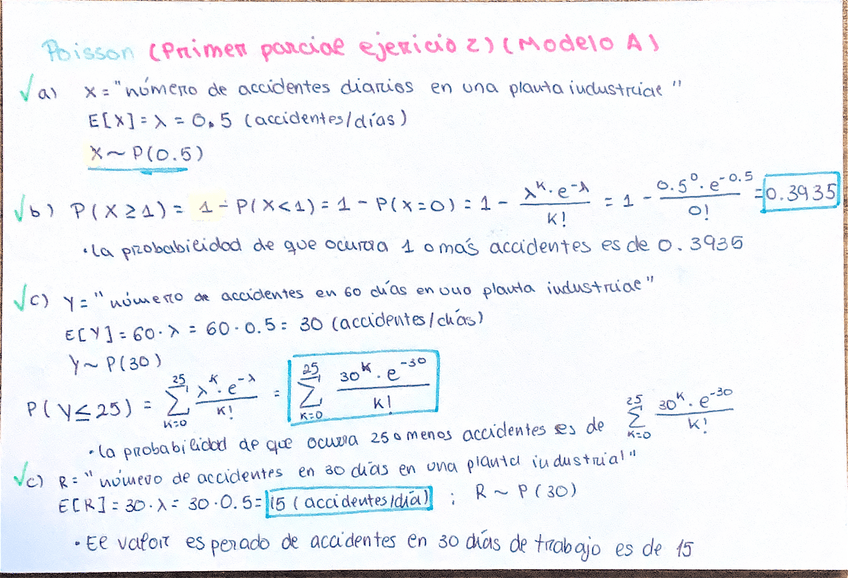 Poisson (Primer parcial ejercicio 2) (Modelo A)
√ a) X = "número de accidentes diarios en una planta industrial"
E[X] = λ = 0.5 (accidentes/días)
X ~ P(0.5)
√ b) P(X ≥ 1) = 1 - P(X < 1) = 1 - P(X = 0) = 1 - λ^k · e^-λ / k! = 1 - 0.5^0 · e^-0.5 / 0! = 0.3935
· La probabilidad de que ocurra 1 o más accidentes es de 0.3935
√ c) Y = "número de accidentes en 60 días en una planta industrial"
E[Y] = 60 · λ = 60 · 0.5 = 30 (accidentes/días)
Y ~ P(30)
P(Y ≤ 25) = ∑_{k=0}^{25} λ^k · e^-λ / k! = ∑_{k=0}^{25} 30^k · e^-30 / k!
· La probabilidad de que ocurra 25 o menos accidentes es de ∑_{k=0}^{25} 30^k · e^-30 / k!
√ c) R = "número de accidentes en 30 días en una planta industrial"
E[R] = 30 · λ = 30 · 0.5 = 15 (accidentes/día) ; R ~ P(30)
· El valor esperado de accidentes en 30 días de trabajo es de 15